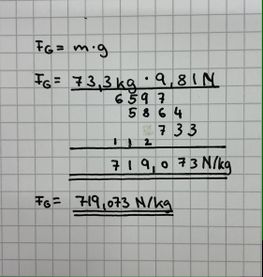 FG = m·g
FG = 73,3kg · 9,81N
6597
5864
733
1 1 2
719,073 N/kg
FG = 719,073 N/kg